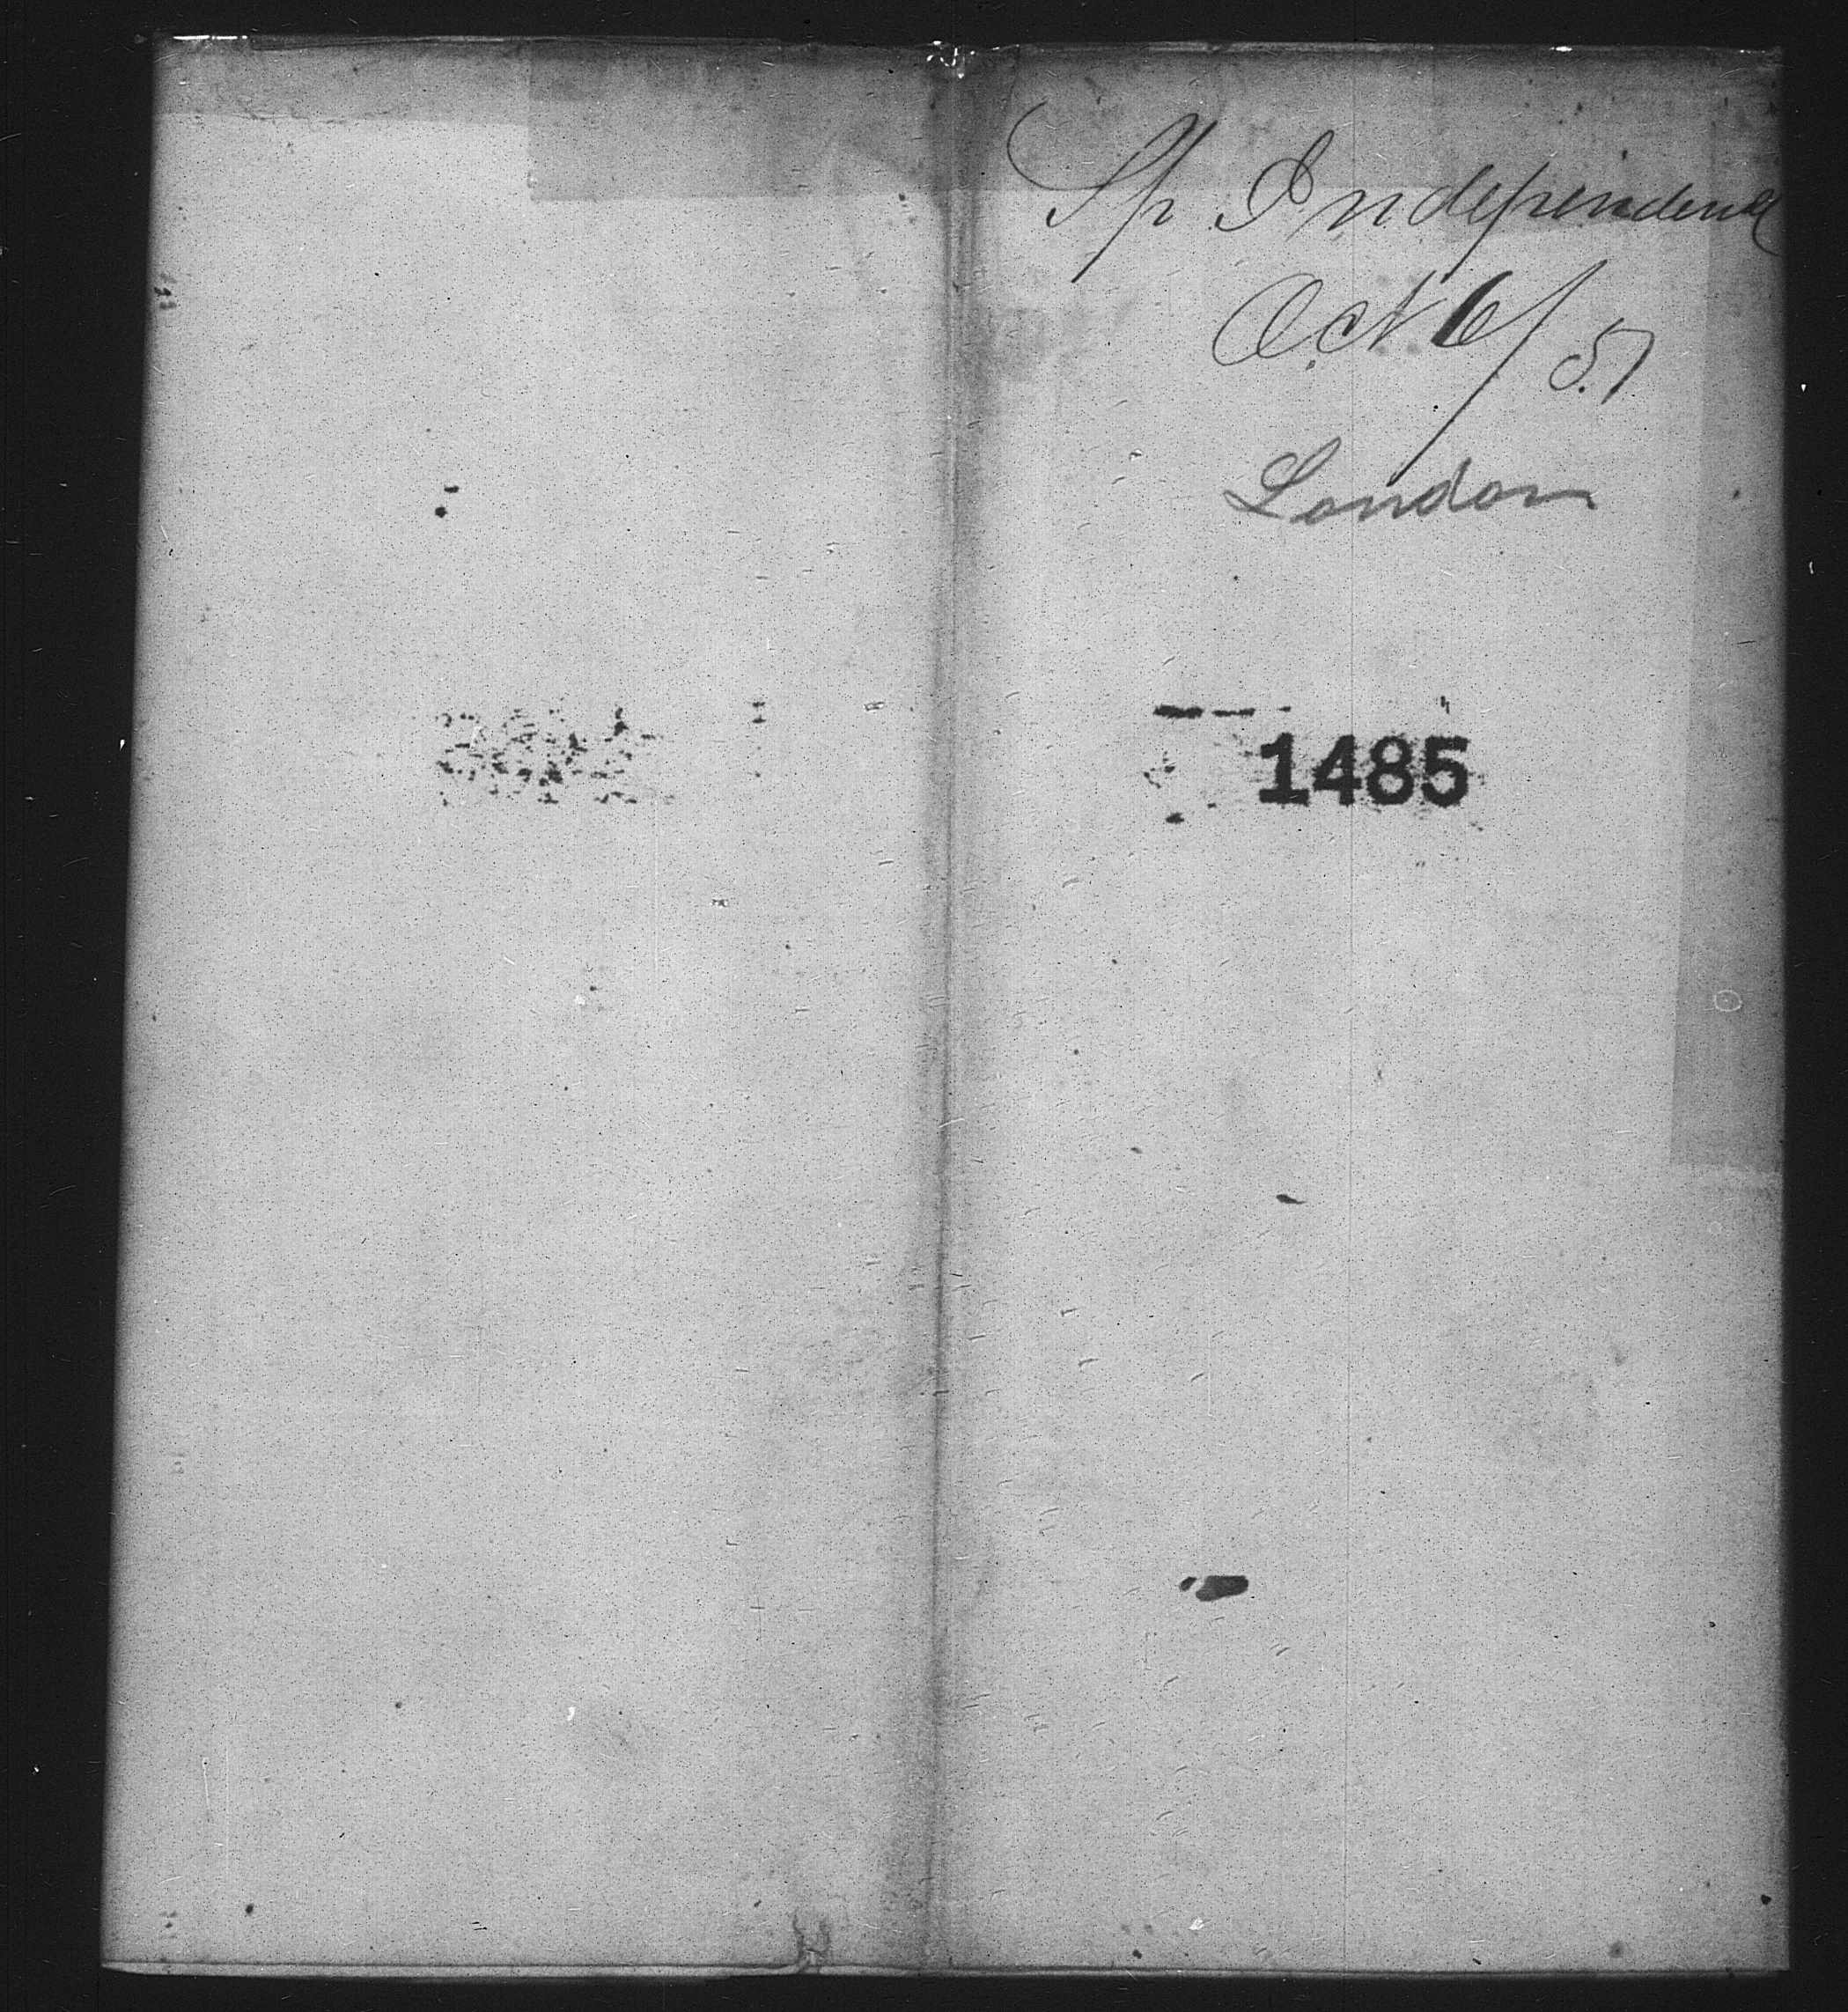 Sp Independence
Oct 6/57
London
1485